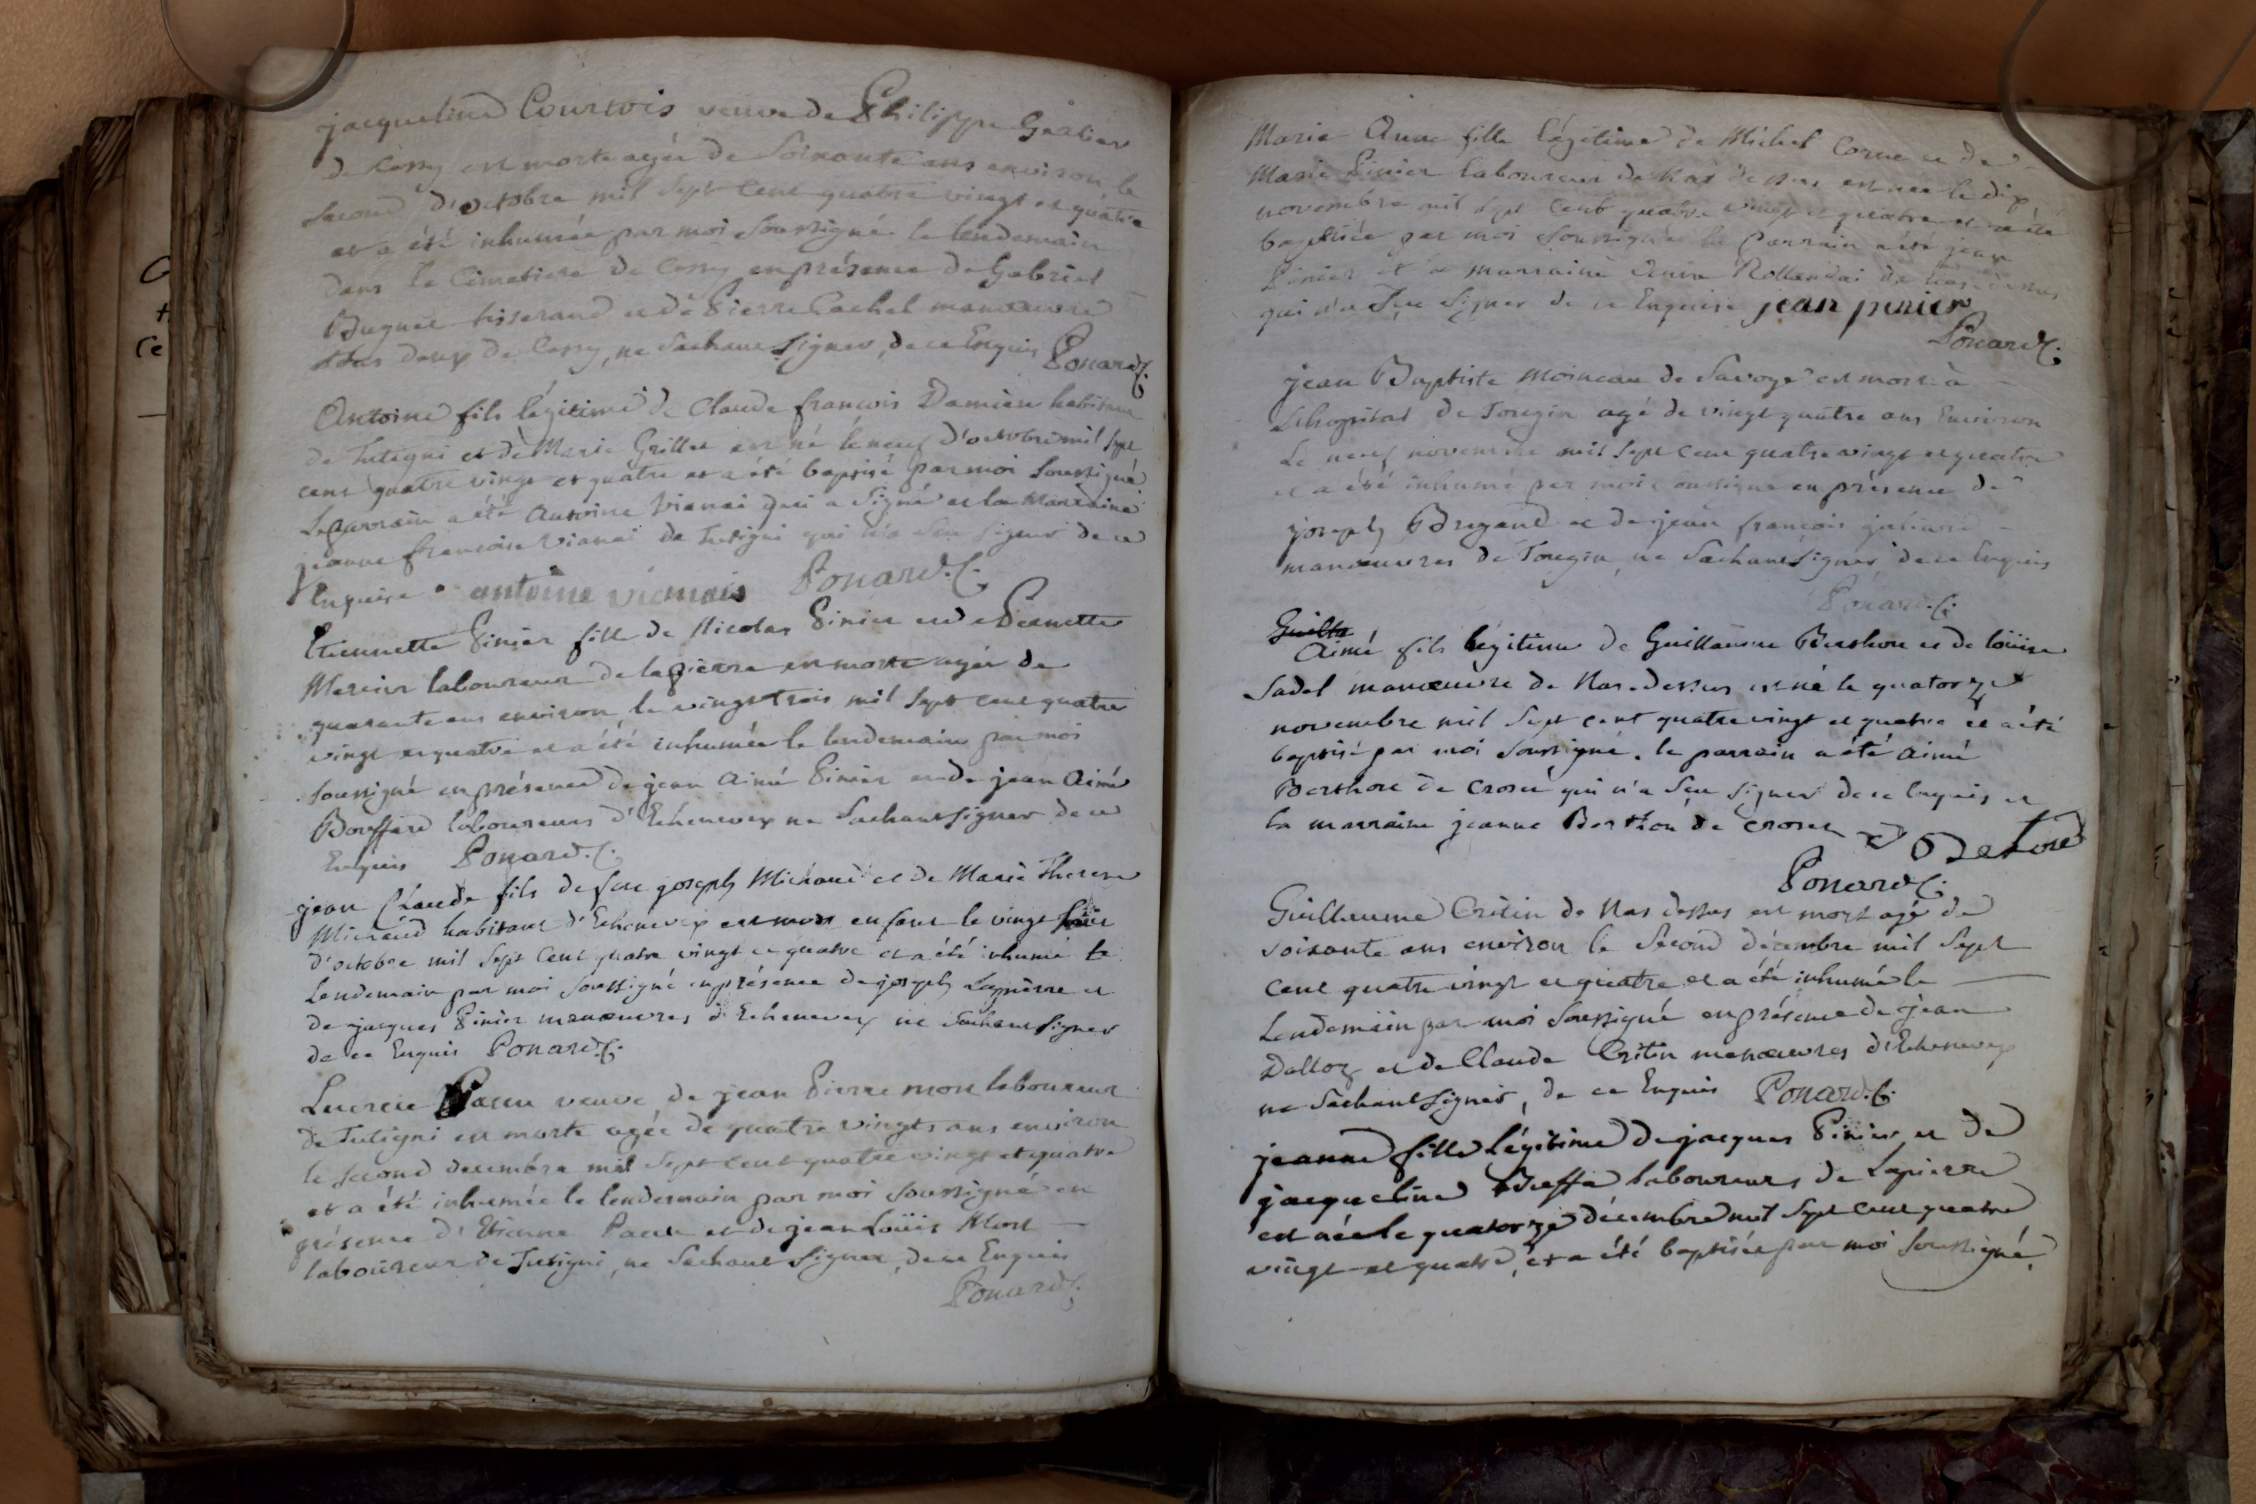 jacqueline Courtois veuve de Philippe
de Cessy est morte agée de Soixante ans environ le
second d'octobre mil Sept cent quatre vingt et quatre
et a été inhumée par moi soussigné le lendemain
dans le Cimetiere de Cessy en présence de Gabriel
tisserand et de Pierre manoeuvre
tous deux de Cessy, ne Sachant Signer, de ce Enquis Ponard C.
Antoine fils légitime de Claude françois Damien habitant
de Tutigni et de Marie Grillet est né le neuf d'octobre mil Sept
cent quatre vingt et quatre et a été baptisé par moi soussigné
Le parrain a été Antoine Vianai qui a Signé et la Marraine
jeanne françoise Vianai de Tutigni qui n'a Seu signer de ce
Enquise antoine vianais Ponard. C.
Etiennette Pinier fille de Nicolas Pinier et de Pernette
Mercier laboureur de la pierre est morte agée de
quarante ans environ le vingt trois mil Sept cent quatre
vingt et quatre et a été inhumée le lendemain par moi
soussigné en présence de jean Aimé Pinier et de jean Aimé
Bouffard laboureurs d'Echenevex ne Sachant signer de ce
Enquis Ponard. C.
jean Claude fils de feu joseph Michaud et de Marie Therese
Michaud habitant d'Echenevex est mort enfant le vingt
d'octobre mil Sept Cent quatre vingt et quatre et a été inhumé le
Lendemain par moi soussigné en présence de joseph Lapierre et
de jacques Pinier manoeuvres d'Echenevex ne Sachant signer
de ce Enquis Ponard. C.
Lucrece Pacu veuve de jean Pierre Mort laboureur
de Tutigni est morte agée de quatre vingts ans environ
le second decembre mil Sept cent quatre vingt et quatre
et a été inhumée le lendemain par moi soussigné en
présence d'Etienne Pacu et de jean Loüis Mort
laboureur de Tutigni, ne Sachant Signer, de ce Enquis
Ponard C.
Marie Anne fille légitime de Michel Corne et de
Marie Pinier laboureur de Nas dessus est née le dix
novembre mil Sept Cent quatre vingt et quatre et a été
baptisée par moi soussigné le Parrain a été jean
Pinier et la marraine de Nas dessus
qui n'a Seu signer de ce Enquise jean pinier
Ponard C.
jean Baptiste Moineau de Savoye est mort à
L'hopital de Tougin agé de vingt quatre ans Environ
Le neuf novembre mil Sept Cent quatre vingt et quatre
et a été inhumé par moi soussigné en présence de
joseph Brigand et de jean françois
manoeuvres de Tougin, ne Sachant signer de ce Enquis
Ponard. C.
Aimé fils légitime de Guillaume Berthou et de loüise
Sadel manoeuvre de Nas-dessus est né le quatorze
novembre mil Sept cent quatre vingt et quatre et a été
baptisé par moi soussigné. le parrain a été Aimé
de crozet qui n'a Seu signer de ce Enquis et
la marraine jeanne de crozet
Ponard C.
Guillaume Critin de Nas dessus est mort agé de
soixante ans environ le second décembre mil Sept
cent quatre vingt et quatre et a été inhumé le
Lendemain par moi soussigné en présence de jean
Dalloz et de Claude Critin manoeuvres d'Echenevex
ne Sachant signer, de ce Enquis Ponard. C.
jeanne fille légitime de jacques Pinier et de
jacqueline laboureurs de Lapierre
est née le quatorze décembre mil Sept cent quatre
vingt et quatre, et a été baptisée par moi soussigné,